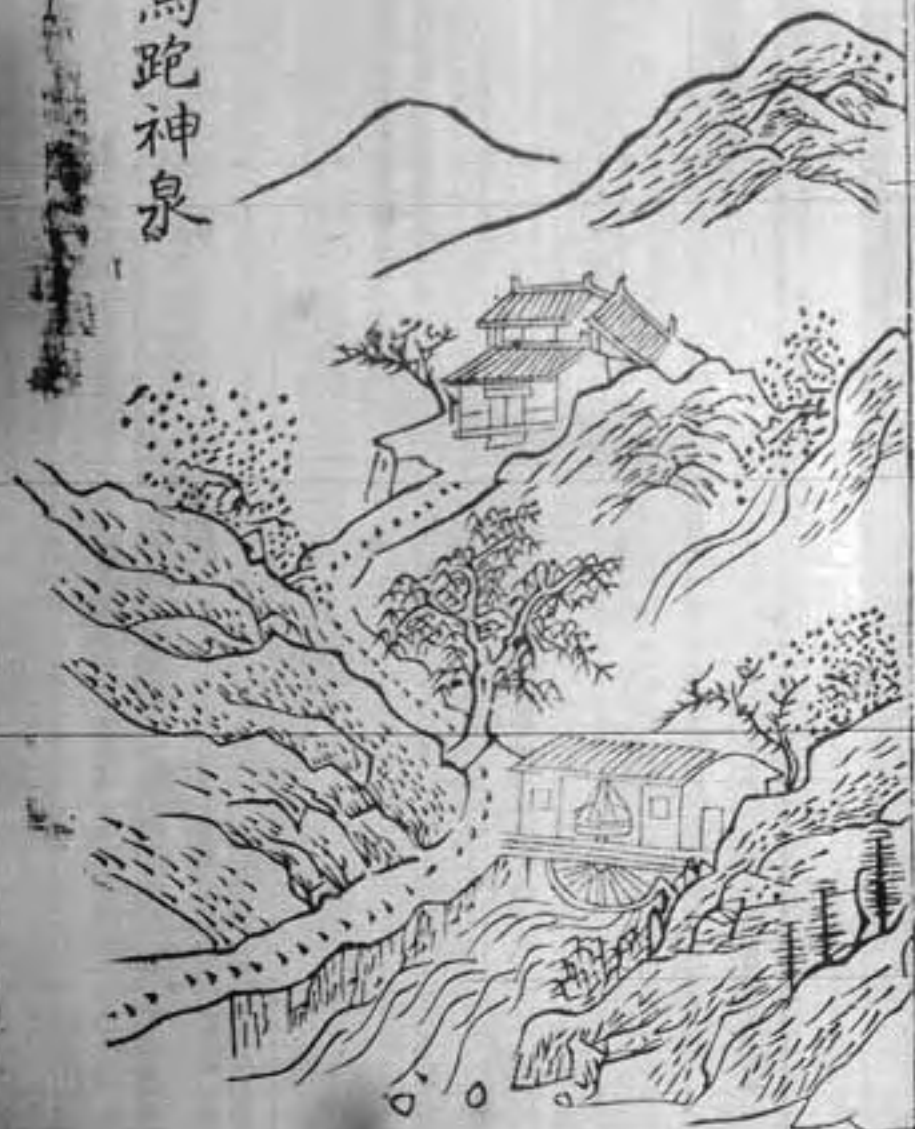 馬跑神泉